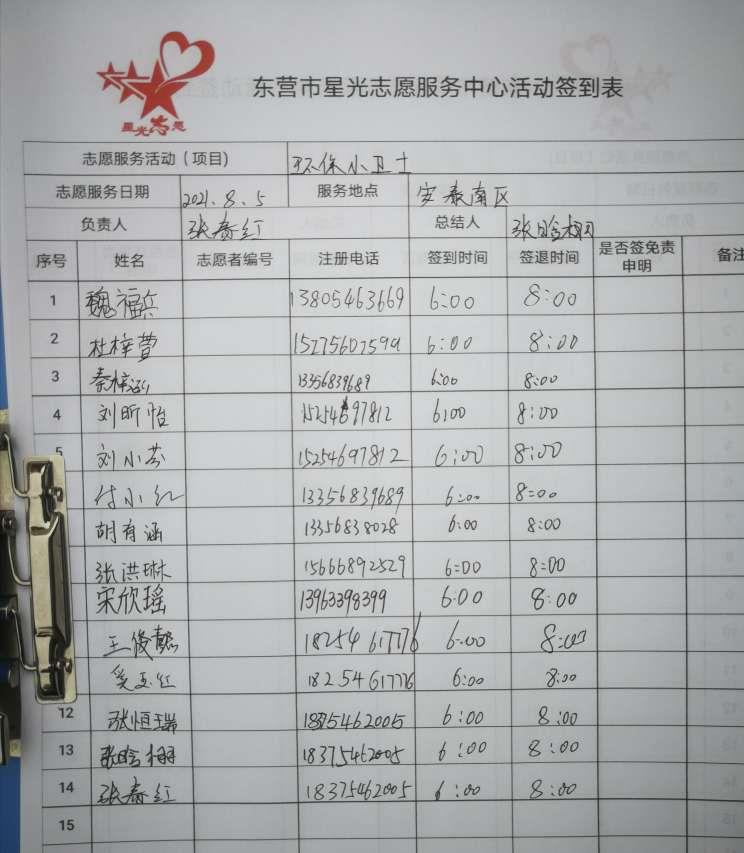 星光志愿
东营市星光志愿服务中心活动签到表
志愿服务活动（项目） 环保小卫士
志愿服务日期 2021.8.5 服务地点 安泰南区
负责人 张春红 总结人 张晗栩
序号 姓名 志愿者编号 注册电话 签到时间 签退时间 是否签免责申明 备注
1 魏福兵 13805463669 6:00 8:00
2 杜梓萱 6:00 8:00
3 秦梓 13356839689 6:00 8:00
4 刘昕怡 15254697812 6:00 8:00
5 刘小芬 15254697812 6:00 8:00
付小红 13356839689 6:00 8:00
胡有涵 13356838028 6:00 8:00
张洪琳 15666892529 6:00 8:00
宋欣瑶 13963398399 6:00 8:00
王俊懿 18254617776 6:00 8:00
红 18254617776 6:00 8:00
12 张恒瑞 18375462005 6:00 8:00
13 张晗栩 18375462005 6:00 8:00
14 张春红 18375462005 6:00 8:00
15